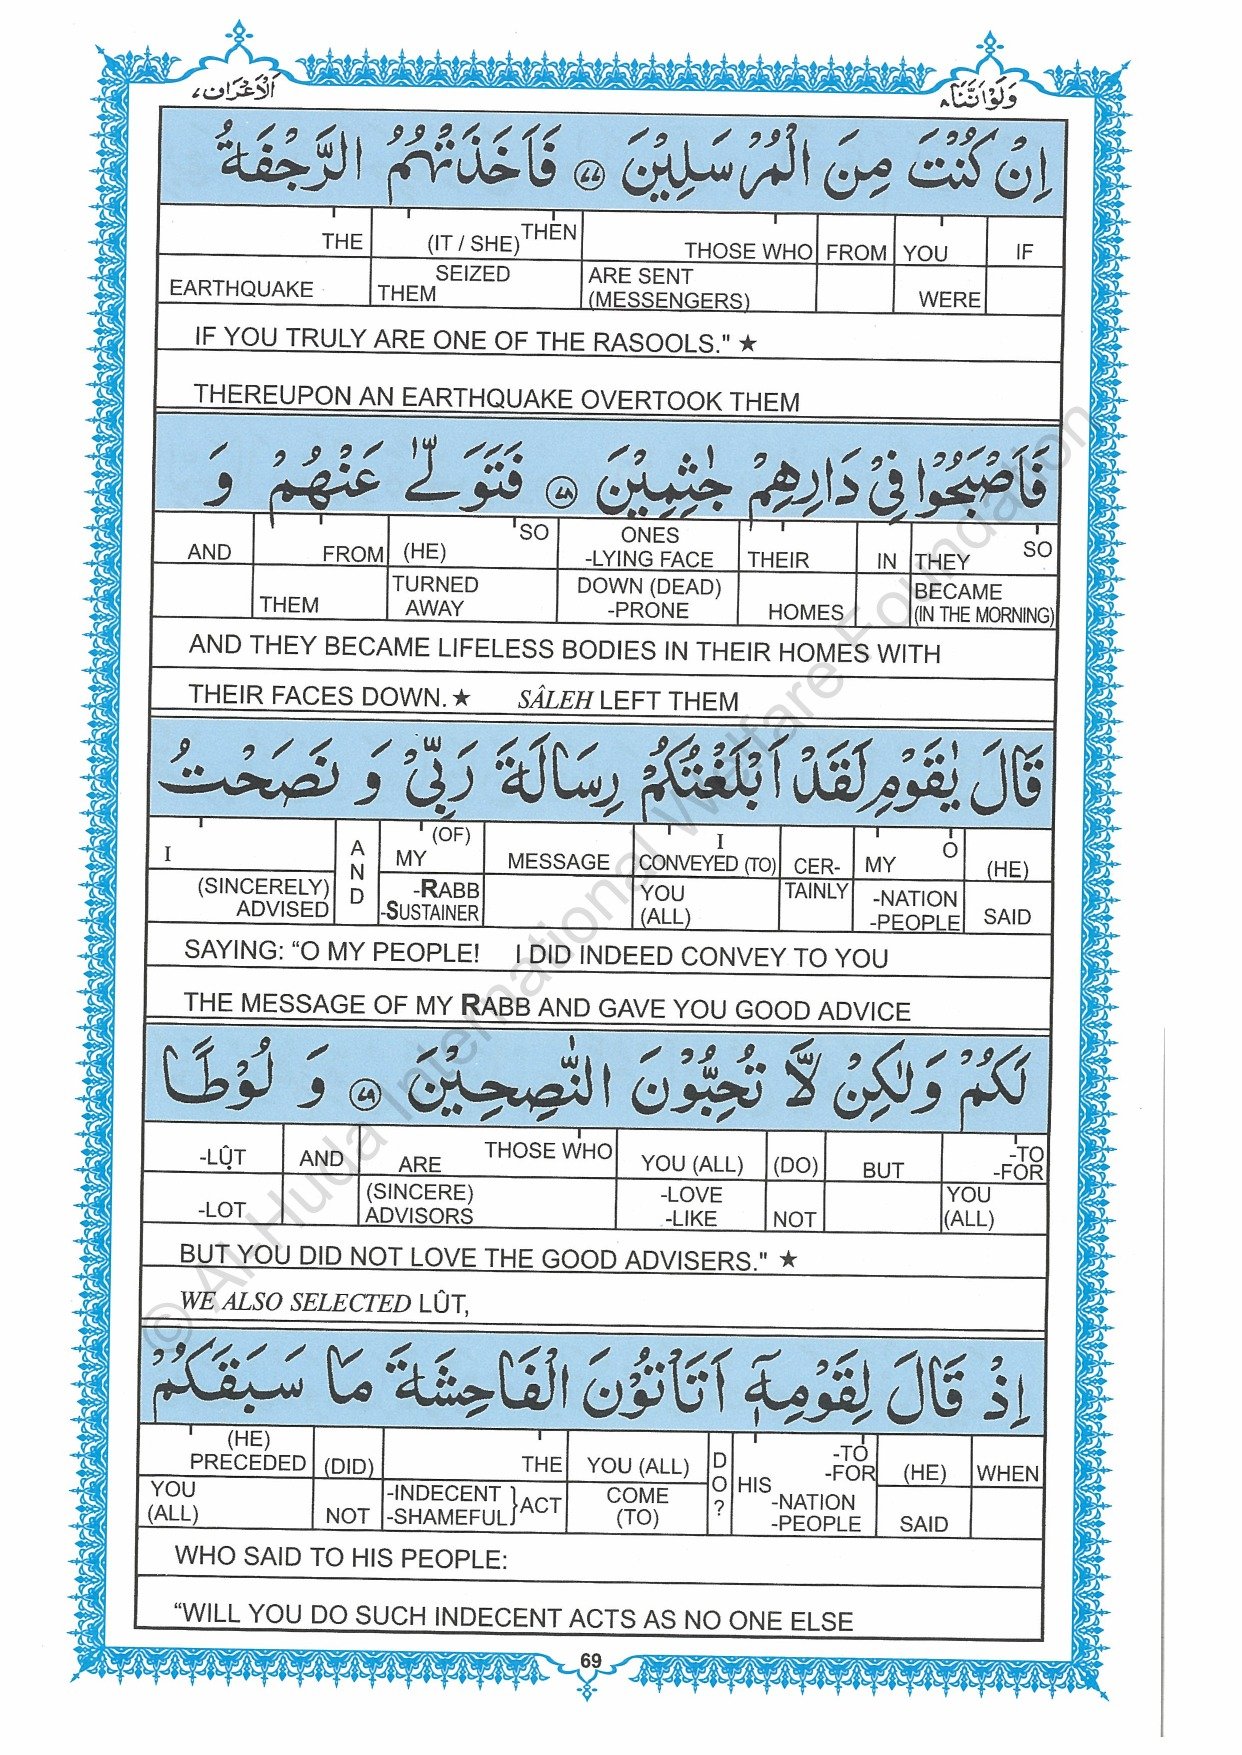 وَلَوْ اَنَّنَا ۸
اَلْاَعْرَاف ۷
اِنْ كُنْتَ مِنَ الْمُرْسَلِيْنَ ۷۷ فَاَخَذَتْهُمُ الرَّجْفَةُ
THE (IT / SHE) THEN THOSE WHO FROM YOU IF
EARTHQUAKE SEIZED THEM ARE SENT (MESSENGERS) WERE
IF YOU TRULY ARE ONE OF THE RASOOLS." ★
THEREUPON AN EARTHQUAKE OVERTOOK THEM
فَاَصْبَحُوْا فِيْ دَارِهِمْ جٰثِمِيْنَ ۷۸ فَتَوَلّٰى عَنْهُمْ وَ
AND FROM (HE) SO ONES -LYING FACE THEIR IN THEY SO
THEM TURNED AWAY DOWN (DEAD) -PRONE HOMES BECAME (IN THE MORNING)
AND THEY BECAME LIFELESS BODIES IN THEIR HOMES WITH
THEIR FACES DOWN. ★ SÂLEH LEFT THEM
قَالَ يٰقَوْمِ لَقَدْ اَبْلَغْتُكُمْ رِسَالَةَ رَبِّيْ وَ نَصَحْتُ
I AND MY (OF) MESSAGE I CONVEYED (TO) CER- MY O (HE)
(SINCERELY) ADVISED -RABB -SUSTAINER YOU (ALL) TAINLY -NATION -PEOPLE SAID
SAYING: “O MY PEOPLE! I DID INDEED CONVEY TO YOU
THE MESSAGE OF MY RABB AND GAVE YOU GOOD ADVICE
لَكُمْ وَلٰكِنْ لَّا تُحِبُّوْنَ النّٰصِحِيْنَ ۷۹ وَ لُوْطًا
-LÛṬ AND ARE THOSE WHO YOU (ALL) (DO) BUT -TO -FOR
-LOT (SINCERE) ADVISORS -LOVE -LIKE NOT YOU (ALL)
BUT YOU DID NOT LOVE THE GOOD ADVISERS." ★
WE ALSO SELECTED LÛT,
اِذْ قَالَ لِقَوْمِهٖۤ اَتَاْتُوْنَ الْفَاحِشَةَ مَا سَبَقَكُمْ
(HE) PRECEDED (DID) THE YOU (ALL) DO? HIS -TO -FOR (HE) WHEN
YOU (ALL) NOT -INDECENT -SHAMEFUL }ACT COME (TO) -NATION -PEOPLE SAID
WHO SAID TO HIS PEOPLE:
“WILL YOU DO SUCH INDECENT ACTS AS NO ONE ELSE
69
© Al Huda International Welfare Foundation